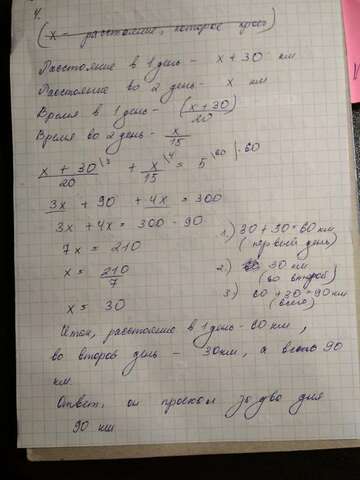 4.
(x = расстояние, которое проех)
Расстояние в 1 день - x + 30 км
Расстояние во 2 день - x км
Время в 1 день - (x+30)/20
Время во 2 день - x/15
x + 30/20 \3 + x/15 \4 = 5 \60 |· 60
3x + 90 + 4x = 300
3x + 4x = 300 - 90
7x = 210
x = 210/7
x = 30
1) 30 + 30 = 60 км
(первый день)
2) 30 км
(во второй)
3) 60 + 30 = 90 км
(всего)
Итак, расстояние в 1 день - 60 км,
во второй день - 30 км, а всего 90
км.
Ответ, он проехал за два дня
90 км.